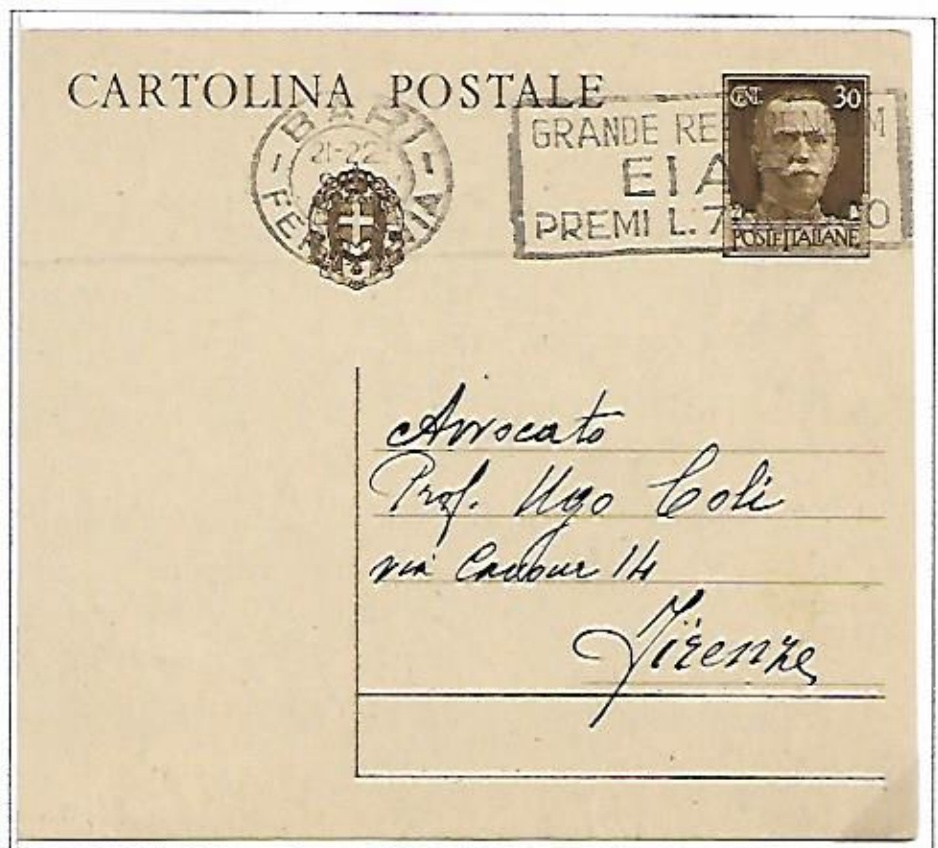 CARTOLINA POSTALE
CENT. 30
BARI
21-22
FERROVIA
GRANDE
EIA
PREMI L. 7
POSTE ITALIANE
Avvocato
Prof. Ugo Coli
via Cavour 14
Firenze